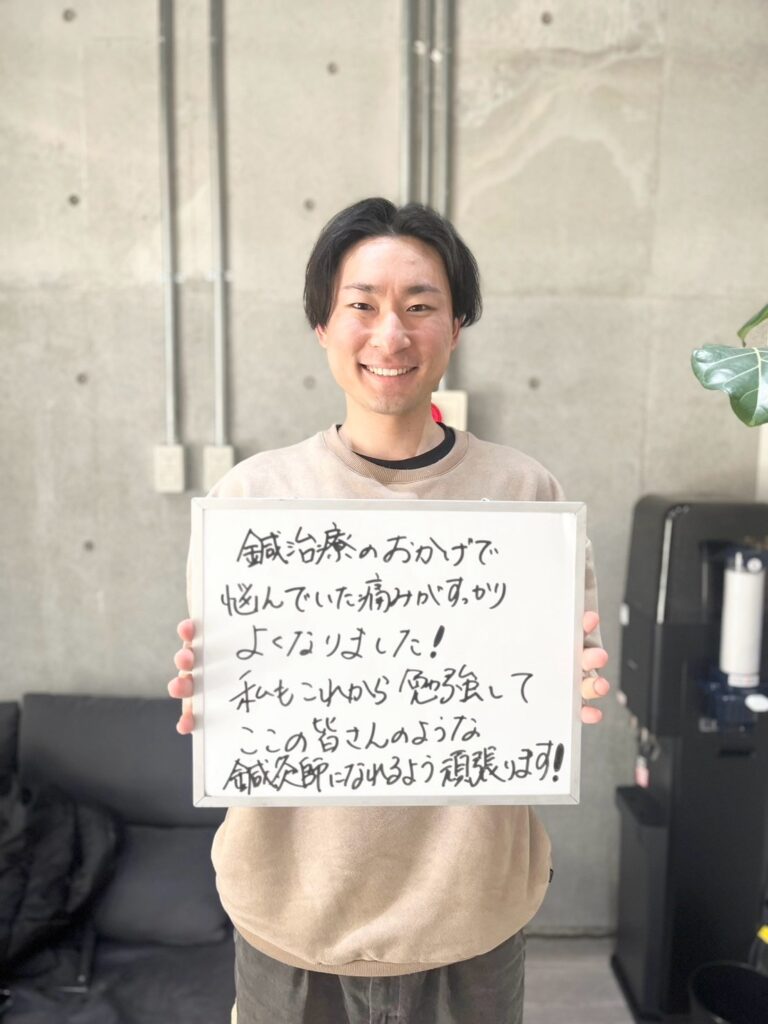 鍼治療のおかげで
悩んでいた痛みがすっかり
よくなりました!
私もこれから勉強して
ここの皆さんのような
鍼灸師になれるよう頑張ります!